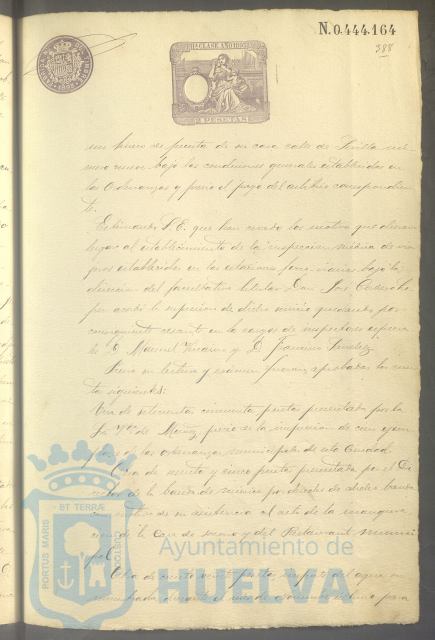 N.0.444.164
388
11ª CLASE AÑO 1893
2 PESETAS
un hueco de puerta de su casa calle de Sevilla nú-
mero nueve bajo las condiciones generales establecidas en
las Ordenanzas y previo el pago del arbitrio correspondien-
te.
Estimando S. E. que han cesado los motivos que dieron
lugar al establecimiento de la inspeccion médica de via-
jeros establecida en las estaciones ferro-viarias bajo la
direccion del facultativo titular Don José
acordó la supresion de dicho servicio quedando por
consiguiente cesante en los cargos de inspectores
D. Manuel y D. Francisco
Previa su lectura y exámen fueron aprobadas las cuen-
tas siguientes:
Una de setecientas cincuenta pesetas presentada por la
Sra. Vda. de Muñoz, precio de la impresion de cien ejem-
plares de las ordenanzas municipales de esta Ciudad.
Otra de ciento y cinco pesetas presentada por el Di-
rector de la banda de musica por derechos de dicha banda
su asistencia al acto de la inaugura-
cion de la Casa de socorro y del Restaurant munici-
pal.
Otra de ciento veinte pesetas del agua su-
ministrada durante el mes de
ET TERRÆ
PORTUS MARIS
CUSTODIA
Ayuntamiento de
HUELVA